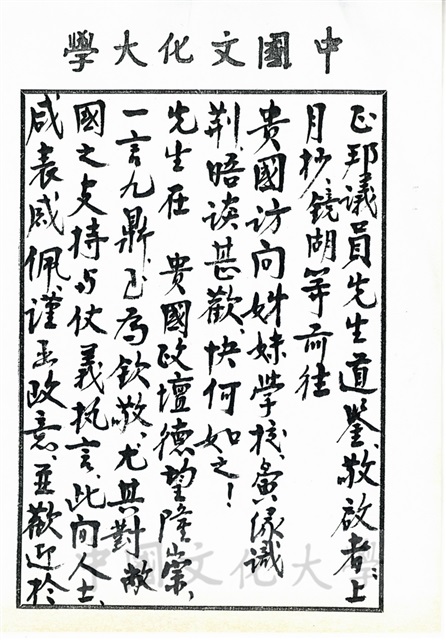 中國文化大學
正邦議員先生道鑒、敬啟者：上
月抄、鏡湖等前往
貴國訪問姊妹學校、彙緣識
荊、晤談甚歡、快何如之！
先生在 貴國政壇德望隆崇、
一言九鼎、已為欽敬、尤其對敝
國之支持与仗義執言、此间人士、
咸表感佩、謹函致意、並歡迎於
中國文化大學